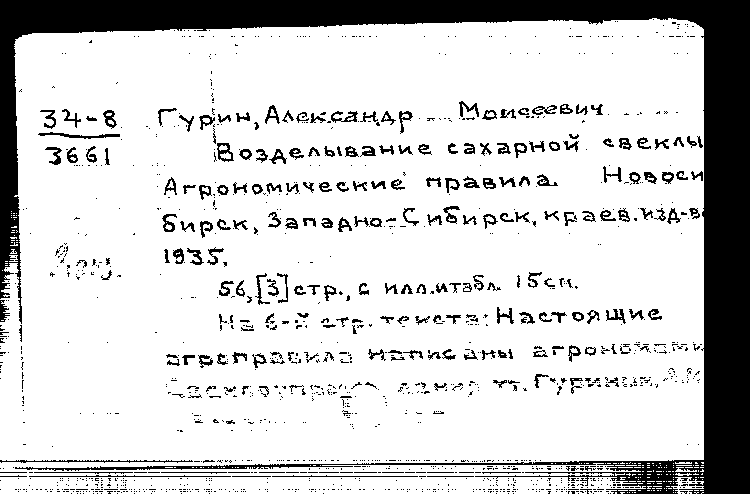 34-8
3661
Гурин, Александр Моисеевич
Возделывание сахарной свеклы
Агрономические правила. Новоси
бирск, Западно-Сибирск. краев. изд-во
1935.
56, [3] стр., с илл. и табл. 15 см.
На 6-й стр. текста: Настоящие
агроправила написаны агрономами
тт. Гуриным, А.М